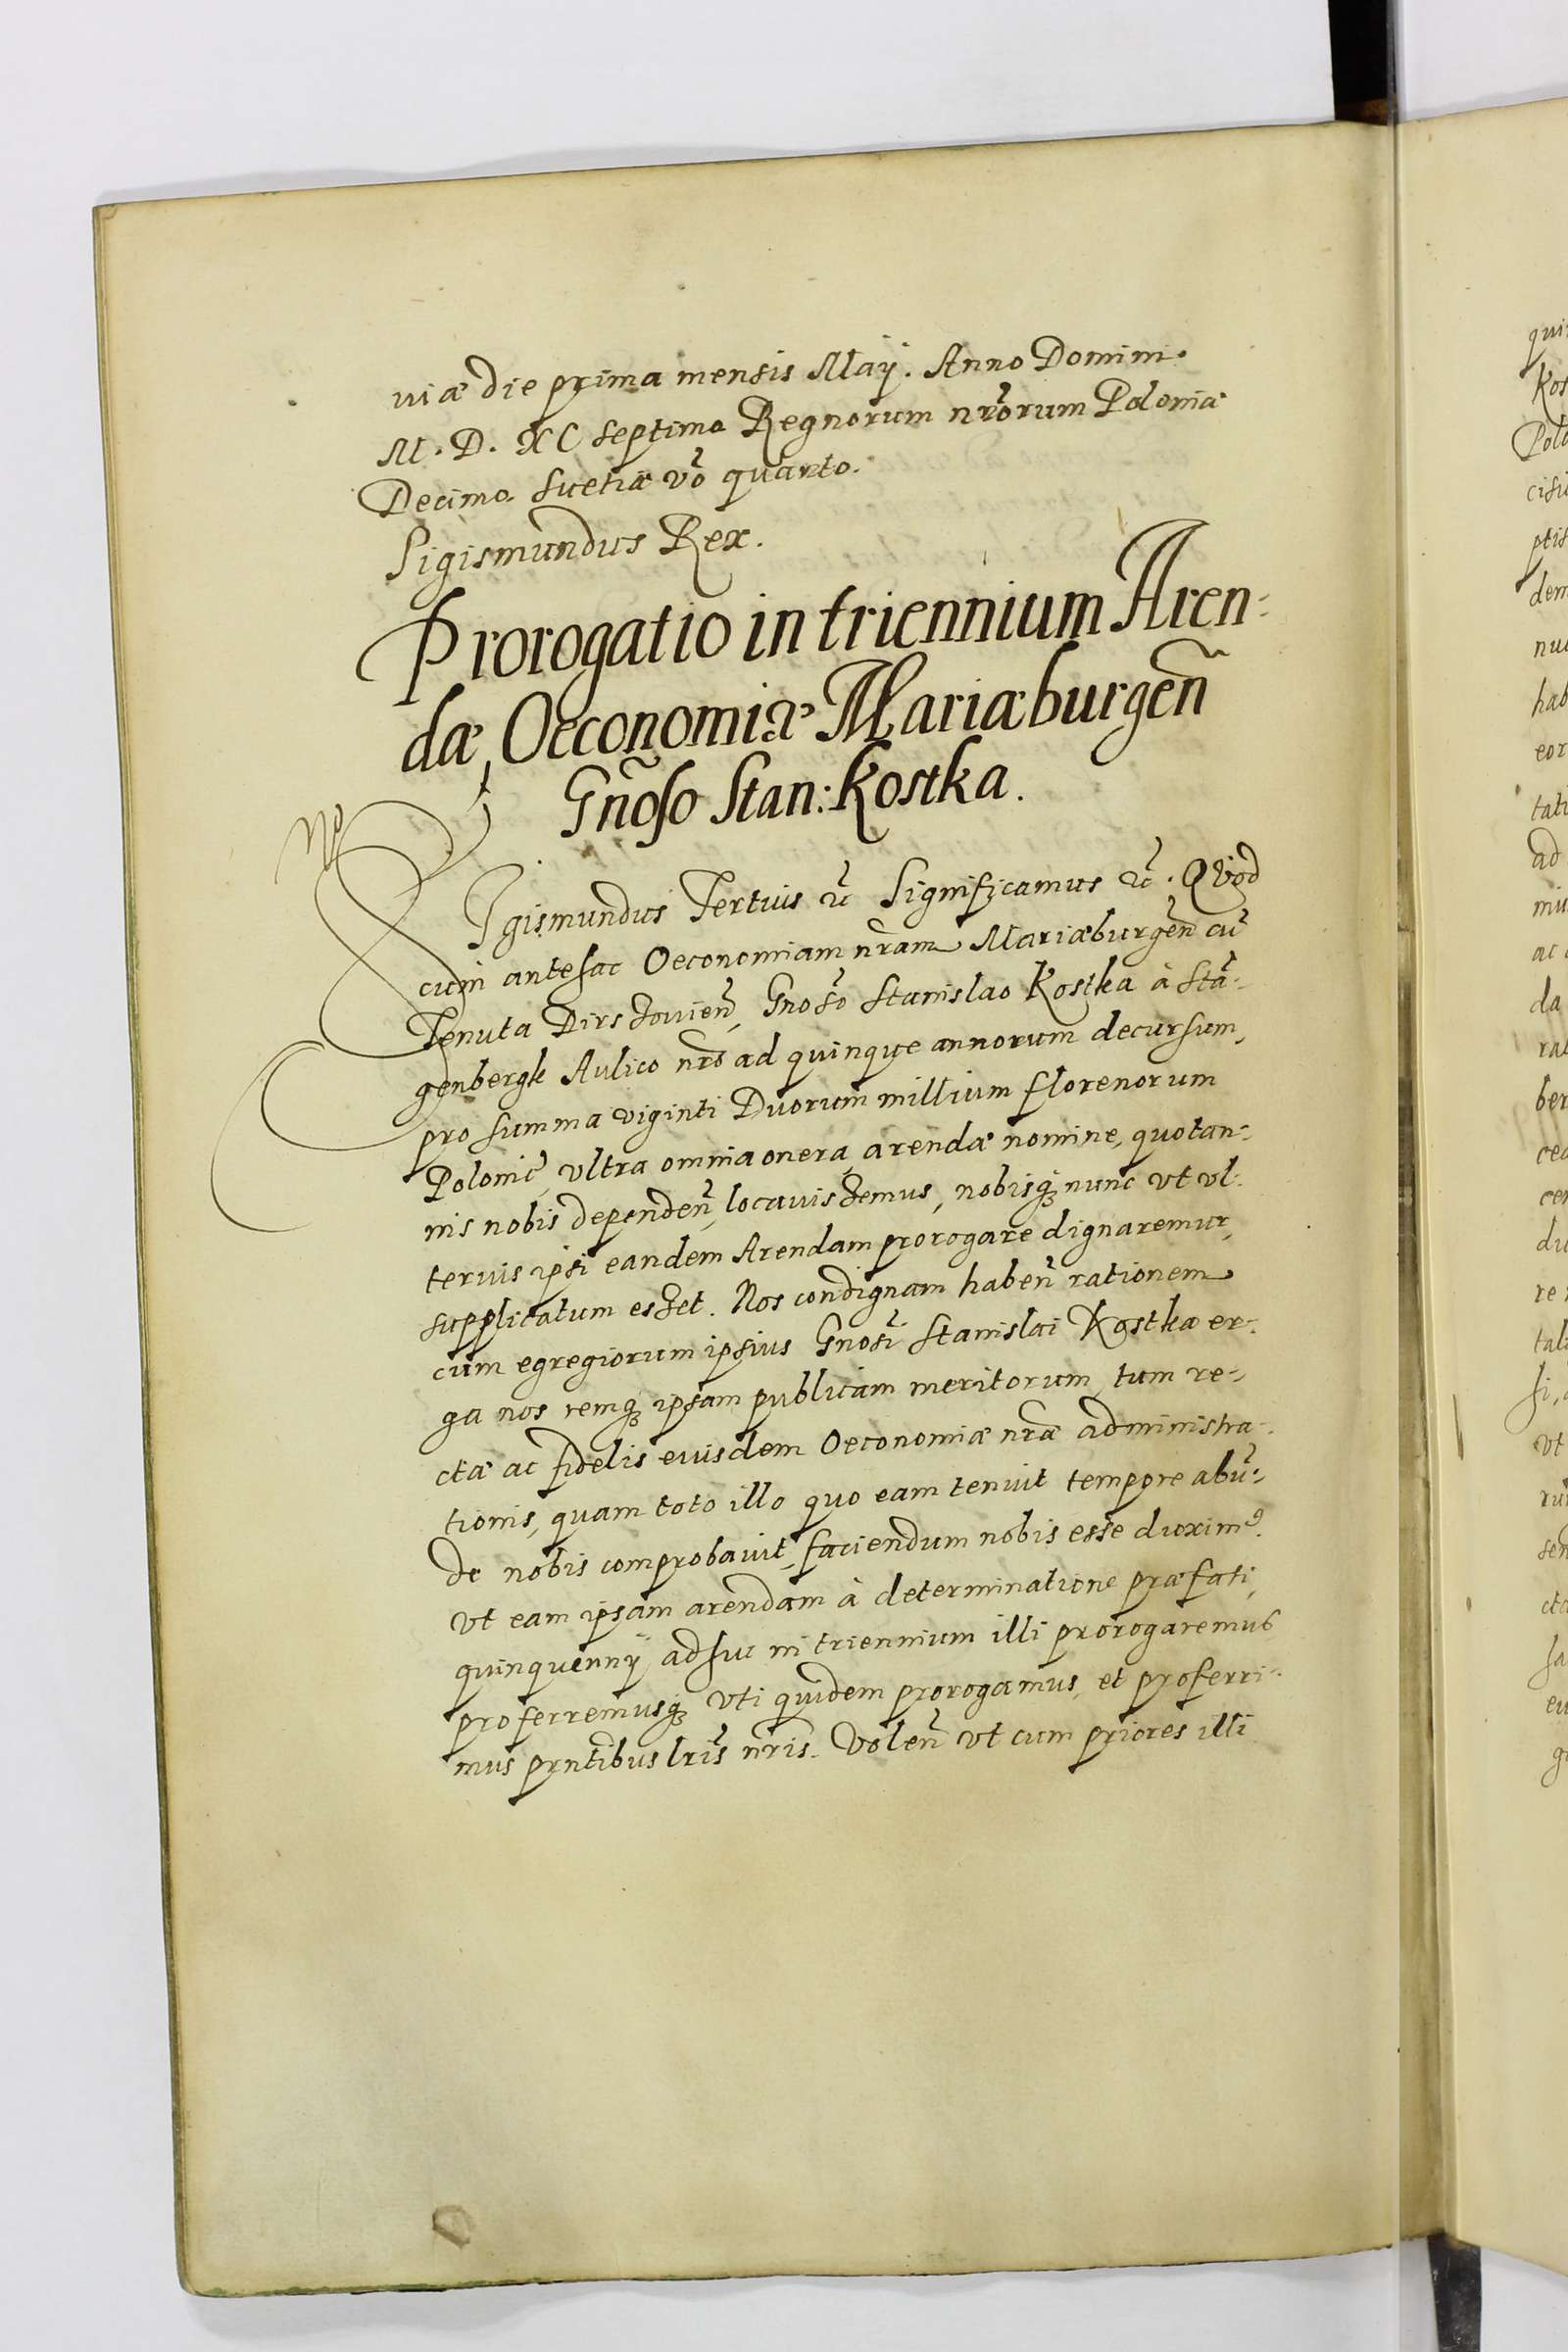 viæ die prima mensis Maÿ. Anno Domini.
M. D. XC septimo Regnorum nrõrum Poloniæ
Decimo. Suetiæ võ quarto.
Sigismundus Rex.
Prorogatio in triennium Aren-
dæ, Oeconomiæ Mariæburgen̄
Gnõso Stan: Kostka.
SIgismundus Tertius &c̃ Significamus &c̃. Quod
cum antehac Oeconomiam nrãm Mariæburgen̄ cũ
Tenuta Dirschouien̄, Gnosõ Stanislao Kostka à Stã-
genbergk Aulico nrõ ad quinque annorum decursum,
pro summa viginti Duorum millium florenorum
Polonic̃, vltra omnia onera, arendæ nomine, quotan-
nis nobis dependen̄, locauissemus, nobisq3 nunc vt vl-
terius ipsi eandem Arendam prorogare dignaremur,
supplicatum esset. Nos condignam haben̄ rationem
cum egregiorum ipsius Gnosĩ Stanislai Kostka er-
ga nos remq3 ipsam publicam meritorum, tum re-
ctæ ac fidelis eiusdem Oeconomiæ nræ̃ administra-
tionis, quam toto illo quo eam tenuit tempore abũ-
de nobis comprobauit, faciendum nobis esse duximꝰ.
vt eam ipsam arendam à determinatione præfati,
quinquennÿ adhuc in triennium illi prorogaremus
proferremusq3 vti quidem prorogamus, et proferri-
mus prntĩbus lrĩs nrĩs. Volen̄ vt cum priores illi